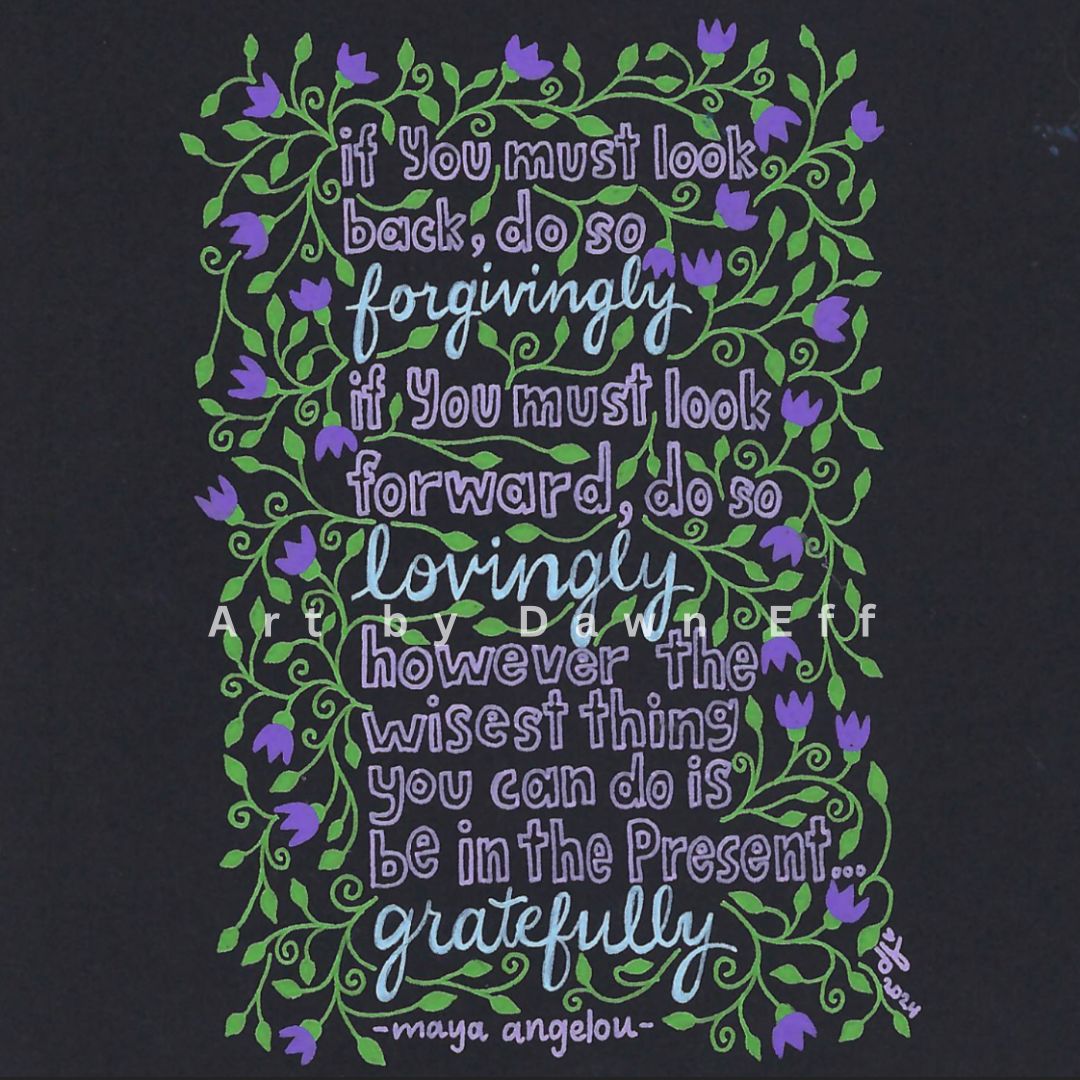 if you must look
back, do so
forgivingly
if you must look
forward, do so
lovingly
Art by Dawn Eff
however the
wisest thing
you can do is
be in the Present...
gratefully
-maya angelou-
2024